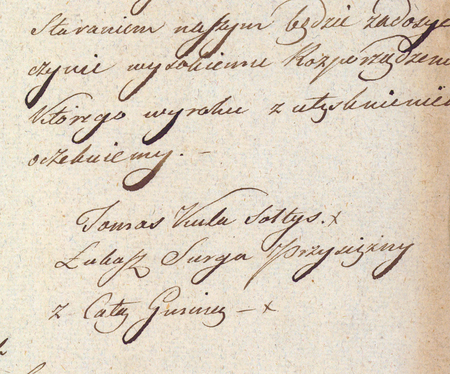 Staraniem naszym będzie zadosyć
czynić wysokienne Rozporządzeni
którego wyroku z utęsknieniem
oczekuiemy. —
Tomas Kula Sołtys. x
Łukasz Surga Przysiężny
z Całą Gminą — x